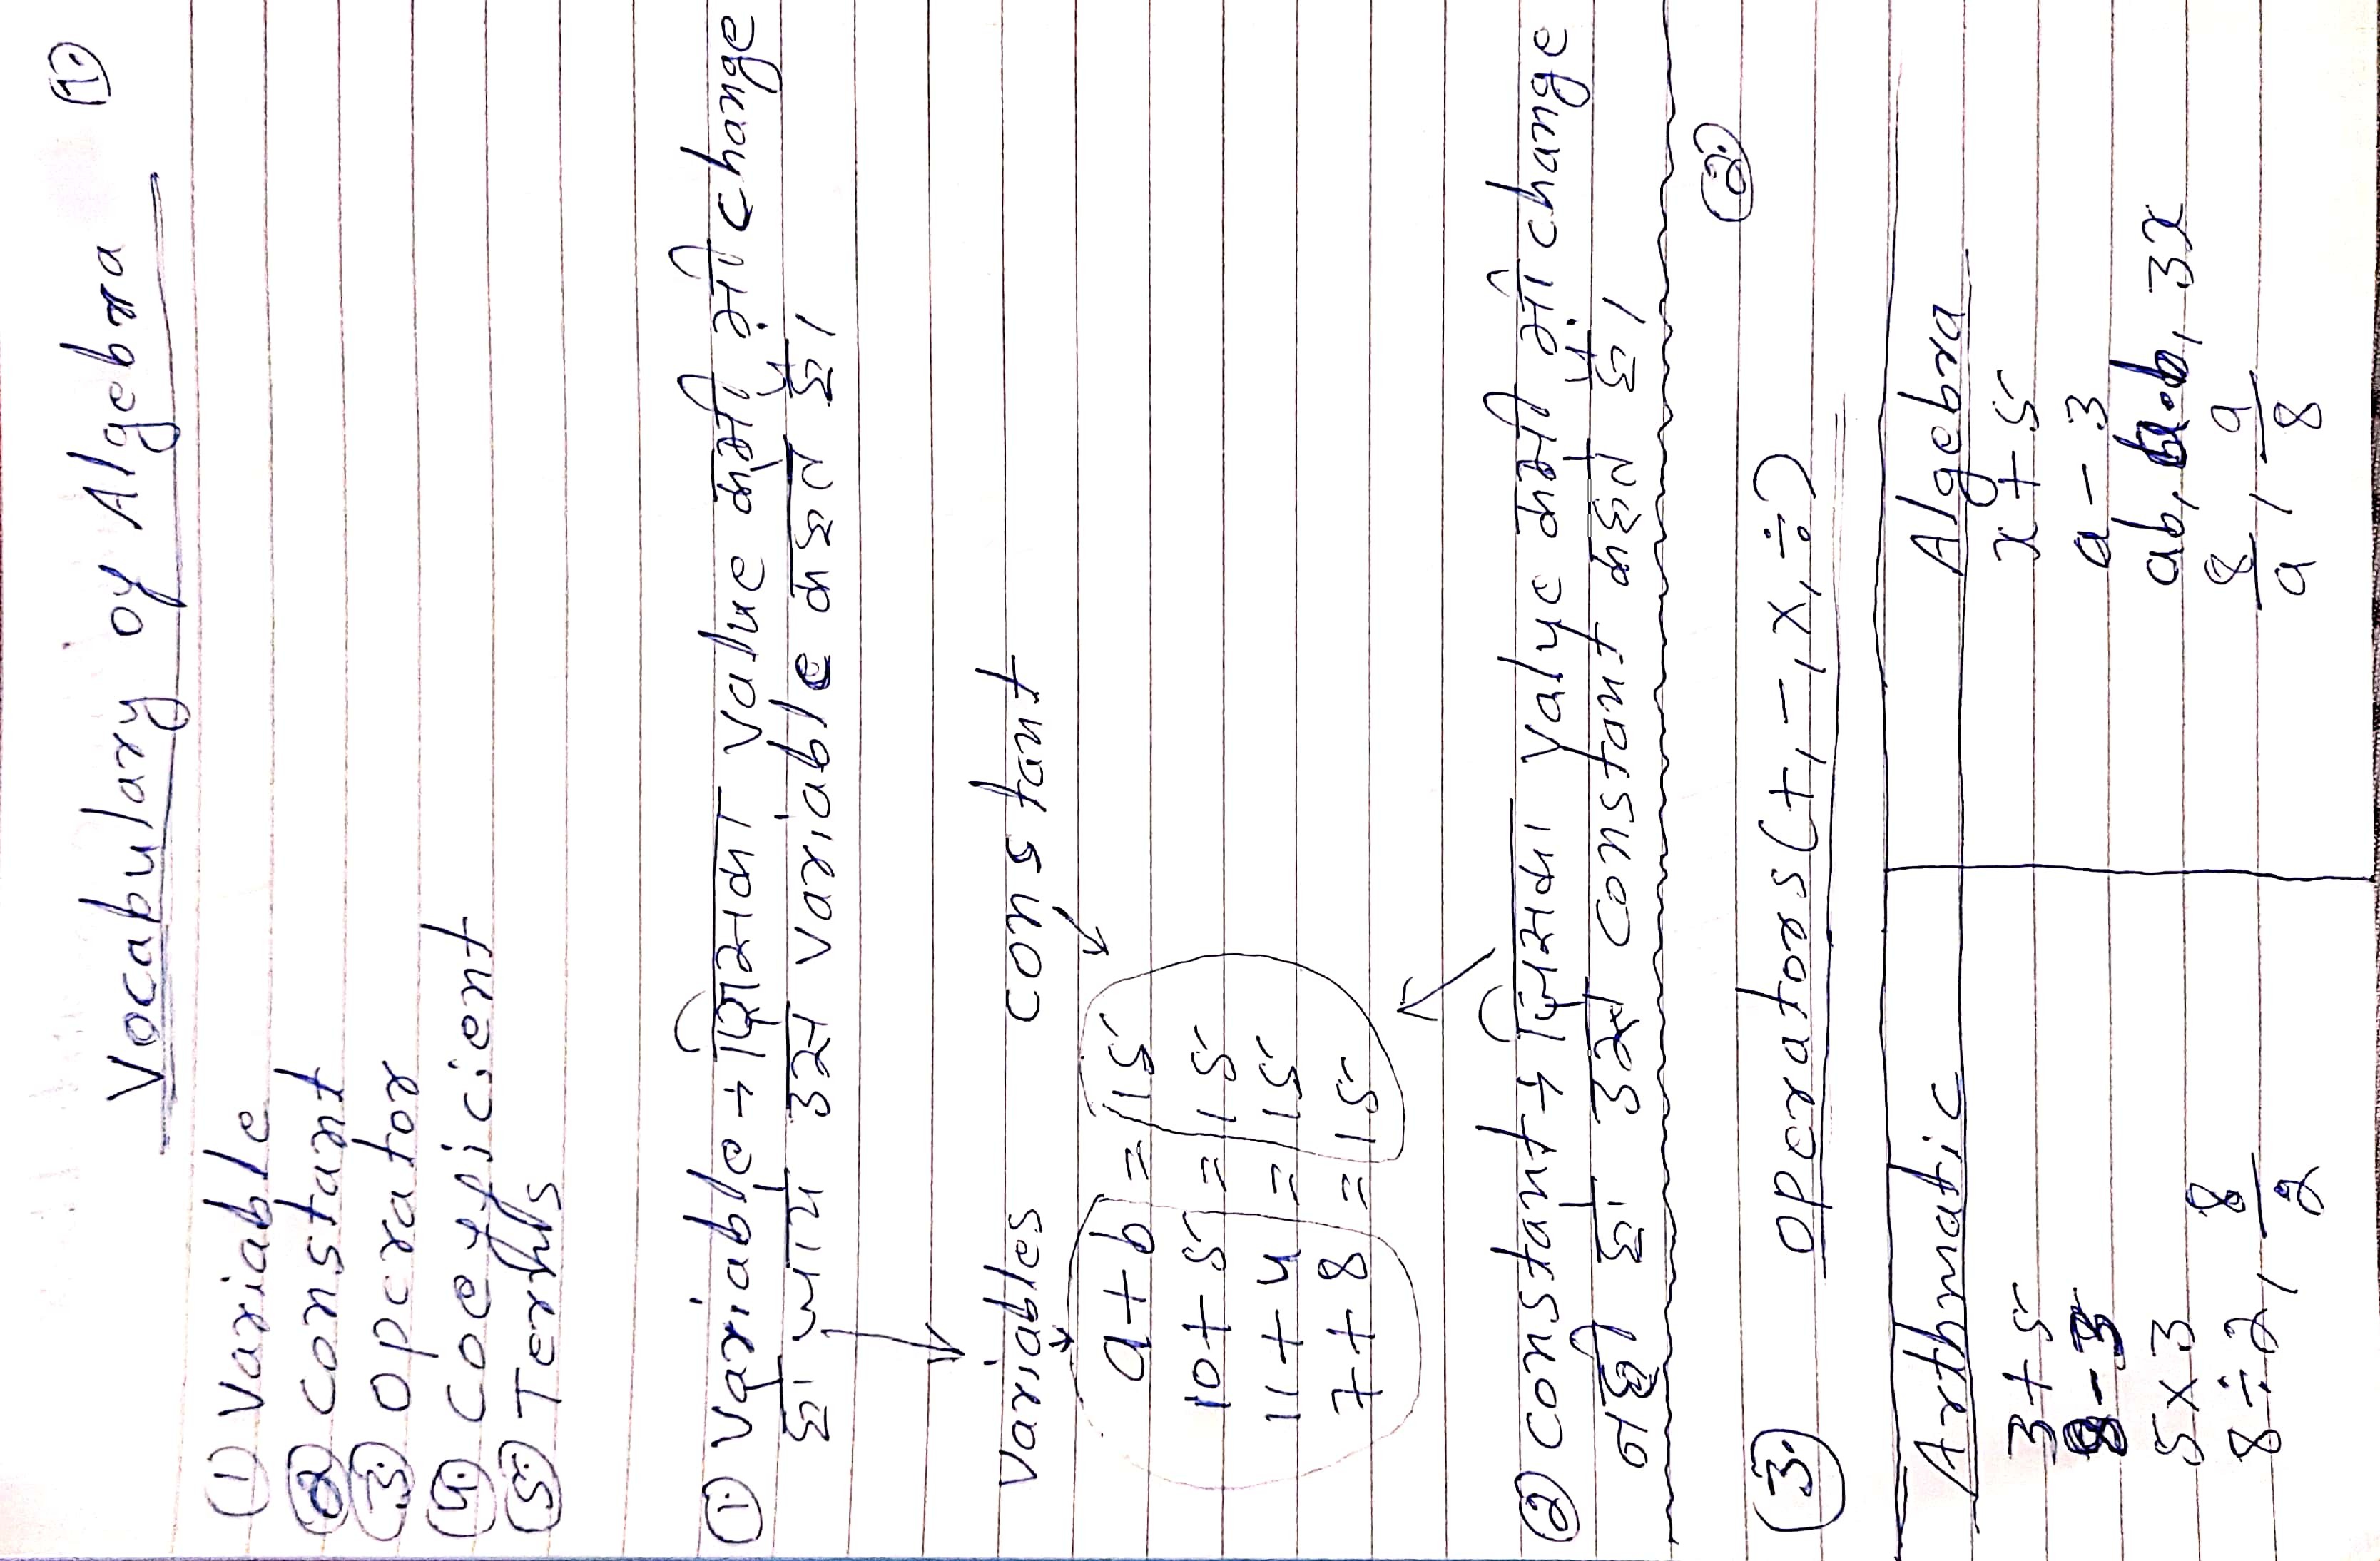 ①.
Vocabulary of Algebra
① Variable
② constant
③. Operator
④. coefficient
⑤. Terms
①. Variable → जिसका Value कभी भी change
हो जाये उसे Variable कहते हैं।
Variables constant
a + b = 15
10 + 5 = 15
11 + 4 = 15
7 + 8 = 15
② constant → जिसका Value कभी भी change
नही हो उसे constant कहते हैं।
②.
③. Operators (+, -, ×, ÷)
Arthmatic Algebra
3 + 5 x + 5
8 - 3 a - 3
5 × 3 ab, a.b, 3x
8 ÷ 2, 8/2 8/a, a/8